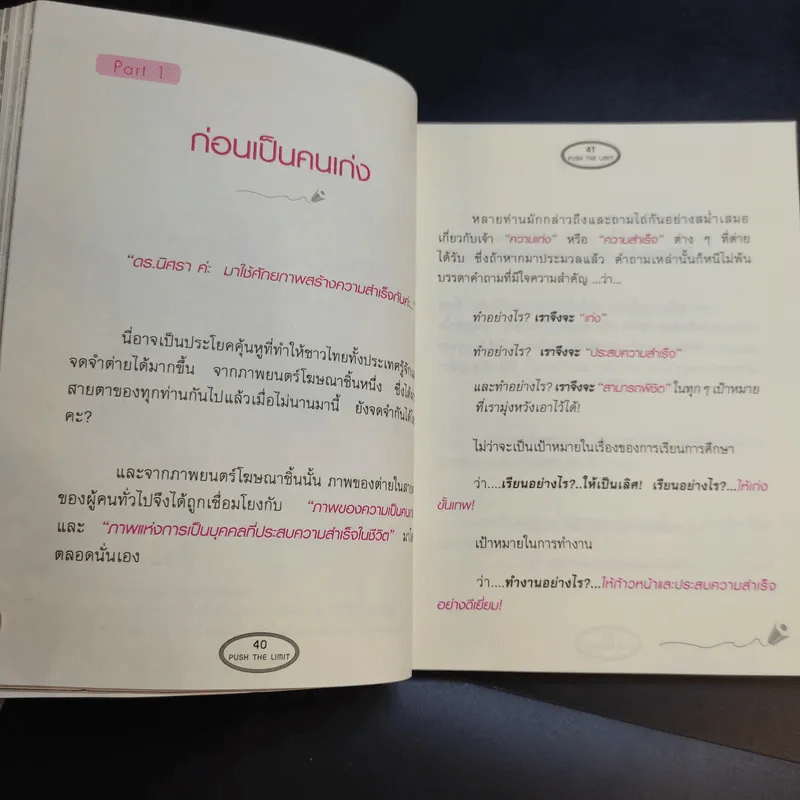 Part 1
ก่อนเป็นคนเก่ง
"ดร.นิศรา ค่ะ มาใช้ศักยภาพสร้างความสำเร็จกันค่ะ
นี่อาจเป็นประโยคคุ้นหูที่ทำให้ชาวไทยทั้งประเทศรู้จัก
จดจำต่ายได้มากขึ้น จากภาพยนตร์โฆษณาชิ้นหนึ่ง
สายตาของทุกท่านกันไปแล้วเมื่อไม่นานมานี้ ยังจดจำกันได้
คะ?
และจากภาพยนตร์โฆษณาชิ้นนั้น ภาพของต่ายใน
ของผู้คนทั่วไปจึงได้ถูกเชื่อมโยงกับ "ภาพของความเป็นคน
และ "ภาพแห่งการเป็นบุคคลที่ประสบความสำเร็จในชีวิต"
ตลอดนั่นเอง
40
PUSH THE LIMIT
41
PUSH THE LIMIT
หลายท่านมักกล่าวถึงและถามไถ่กันอย่างสม่ำเสมอ
เกี่ยวกับเจ้า "ความเก่ง" หรือ "ความสำเร็จ" ต่าง ๆ ที่ต่าย
ได้รับ ซึ่งถ้าหากมาประมวลแล้ว คำถามเหล่านั้นก็หนีไม่พ้น
บรรดาคำถามที่มีใจความสำคัญ ...ว่า...
ทำอย่างไร? เราจึงจะ "เก่ง"
ทำอย่างไร? เราจึงจะ "ประสบความสำเร็จ"
และทำอย่างไร? เราจึงจะ "สามารถพิชิต" ในทุก ๆ เป้าหมาย
ที่เรามุ่งหวังเอาไว้ได้!
ไม่ว่าจะเป็นเป้าหมายในเรื่องของการเรียนการศึกษา
ว่า....เรียนอย่างไร?..ให้เป็นเลิศ! เรียนอย่างไร?...ให้เก่ง
ขั้นเทพ!
เป้าหมายในการทำงาน
ว่า....ทำงานอย่างไร?...ให้ก้าวหน้าและประสบความสำเร็จ
อย่างดีเยี่ยม!